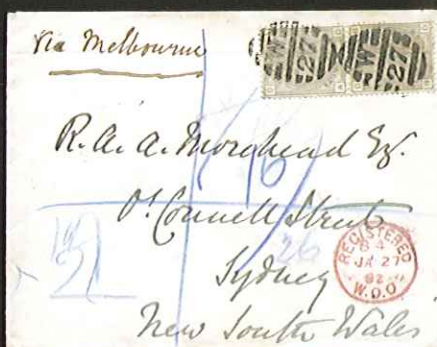 via Melbourne
W 27 W 27
R. A. A. Morehead Esq.
O'Connell Street
Sydney
New South Wales
REGISTERED
JA 27
82
W.D.O
26